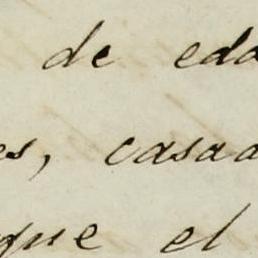 de eda
es, casad
que el